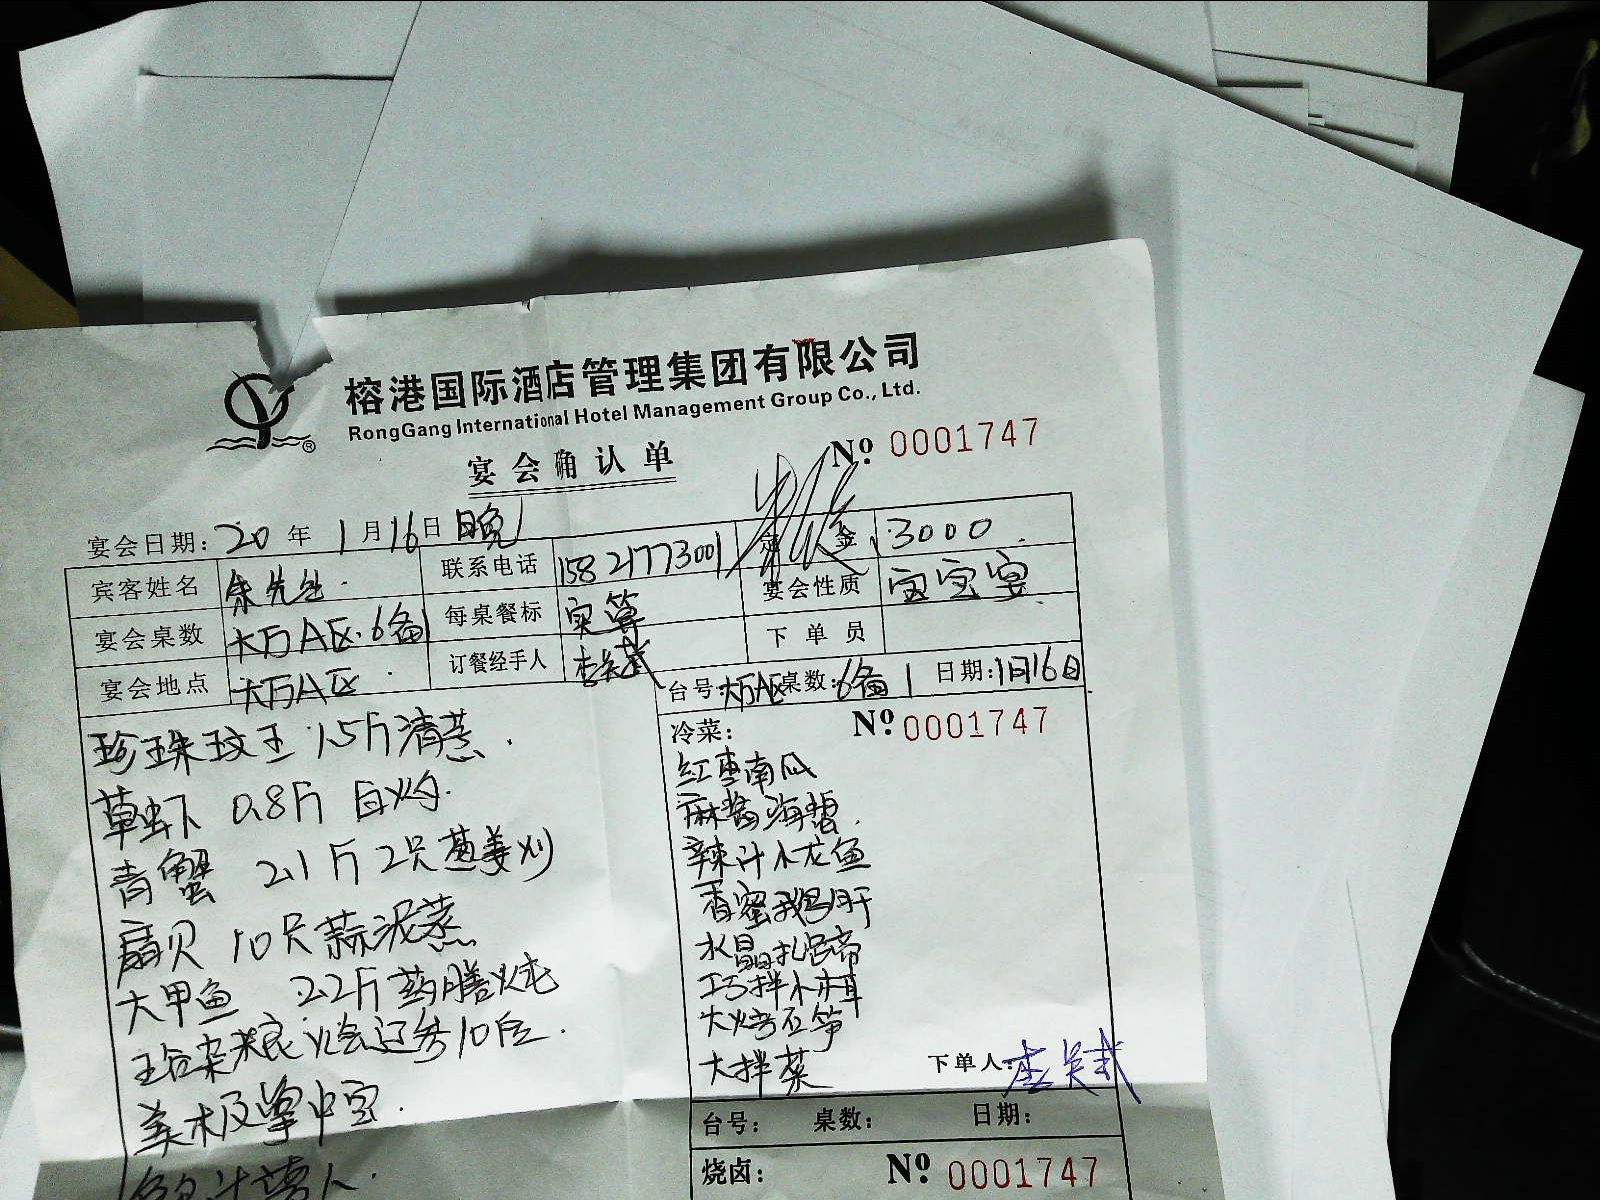 榕港国际酒店管理集团有限公司
RongGang International Hotel Management Group Co., Ltd.
宴会确认单
№ 0001747
宴会日期: 20 年 1 月 16 日 晚
宾客姓名 朱先生 联系电话 15821773001 定金 3000
宴会桌数 大万A区.6备 每桌餐标 实算 宴会性质 宝宝宴
宴会地点 大万A区 订餐经手人 下单员
珍珠玟王 1.5斤清蒸
草虾 0.8斤 白灼
青蟹 2.1斤 2只葱姜炒
扇贝 10只蒜泥蒸
大甲鱼 2.2斤药膳炖
杂粮烩辽参10位
美极掌中宝
台号: 大万A区 桌数: 6备1 日期: 1月16日
冷菜: № 0001747
红枣南瓜
麻酱海蜇
辣汁小龙鱼
香蜜鹅肝
水晶扎蹄
巧拌木耳
大烤石笋
大拌菜
下单人:
台号: 桌数: 日期:
烧卤: № 0001747